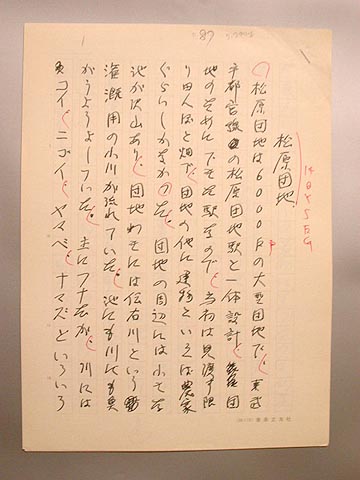 松原団地
14Q×5EG
松原団地は6000戸の大型団地だ。東武
宇都宮線の松原団地駅と一体設計 団
地のためにできた駅なので、当初は見渡す限
り田んぼと畑で、団地の他に建物といえば農家
ぐらいしかなかった。団地の周辺には小さな
池が沢山あり、団地わきには伝右川という
灌漑用の小川が流れていた。池にも川にも魚
がうようよしていた。主にフナだが、川には
コイ、ニゴイ、ヤマベ、ナマズといろいろ